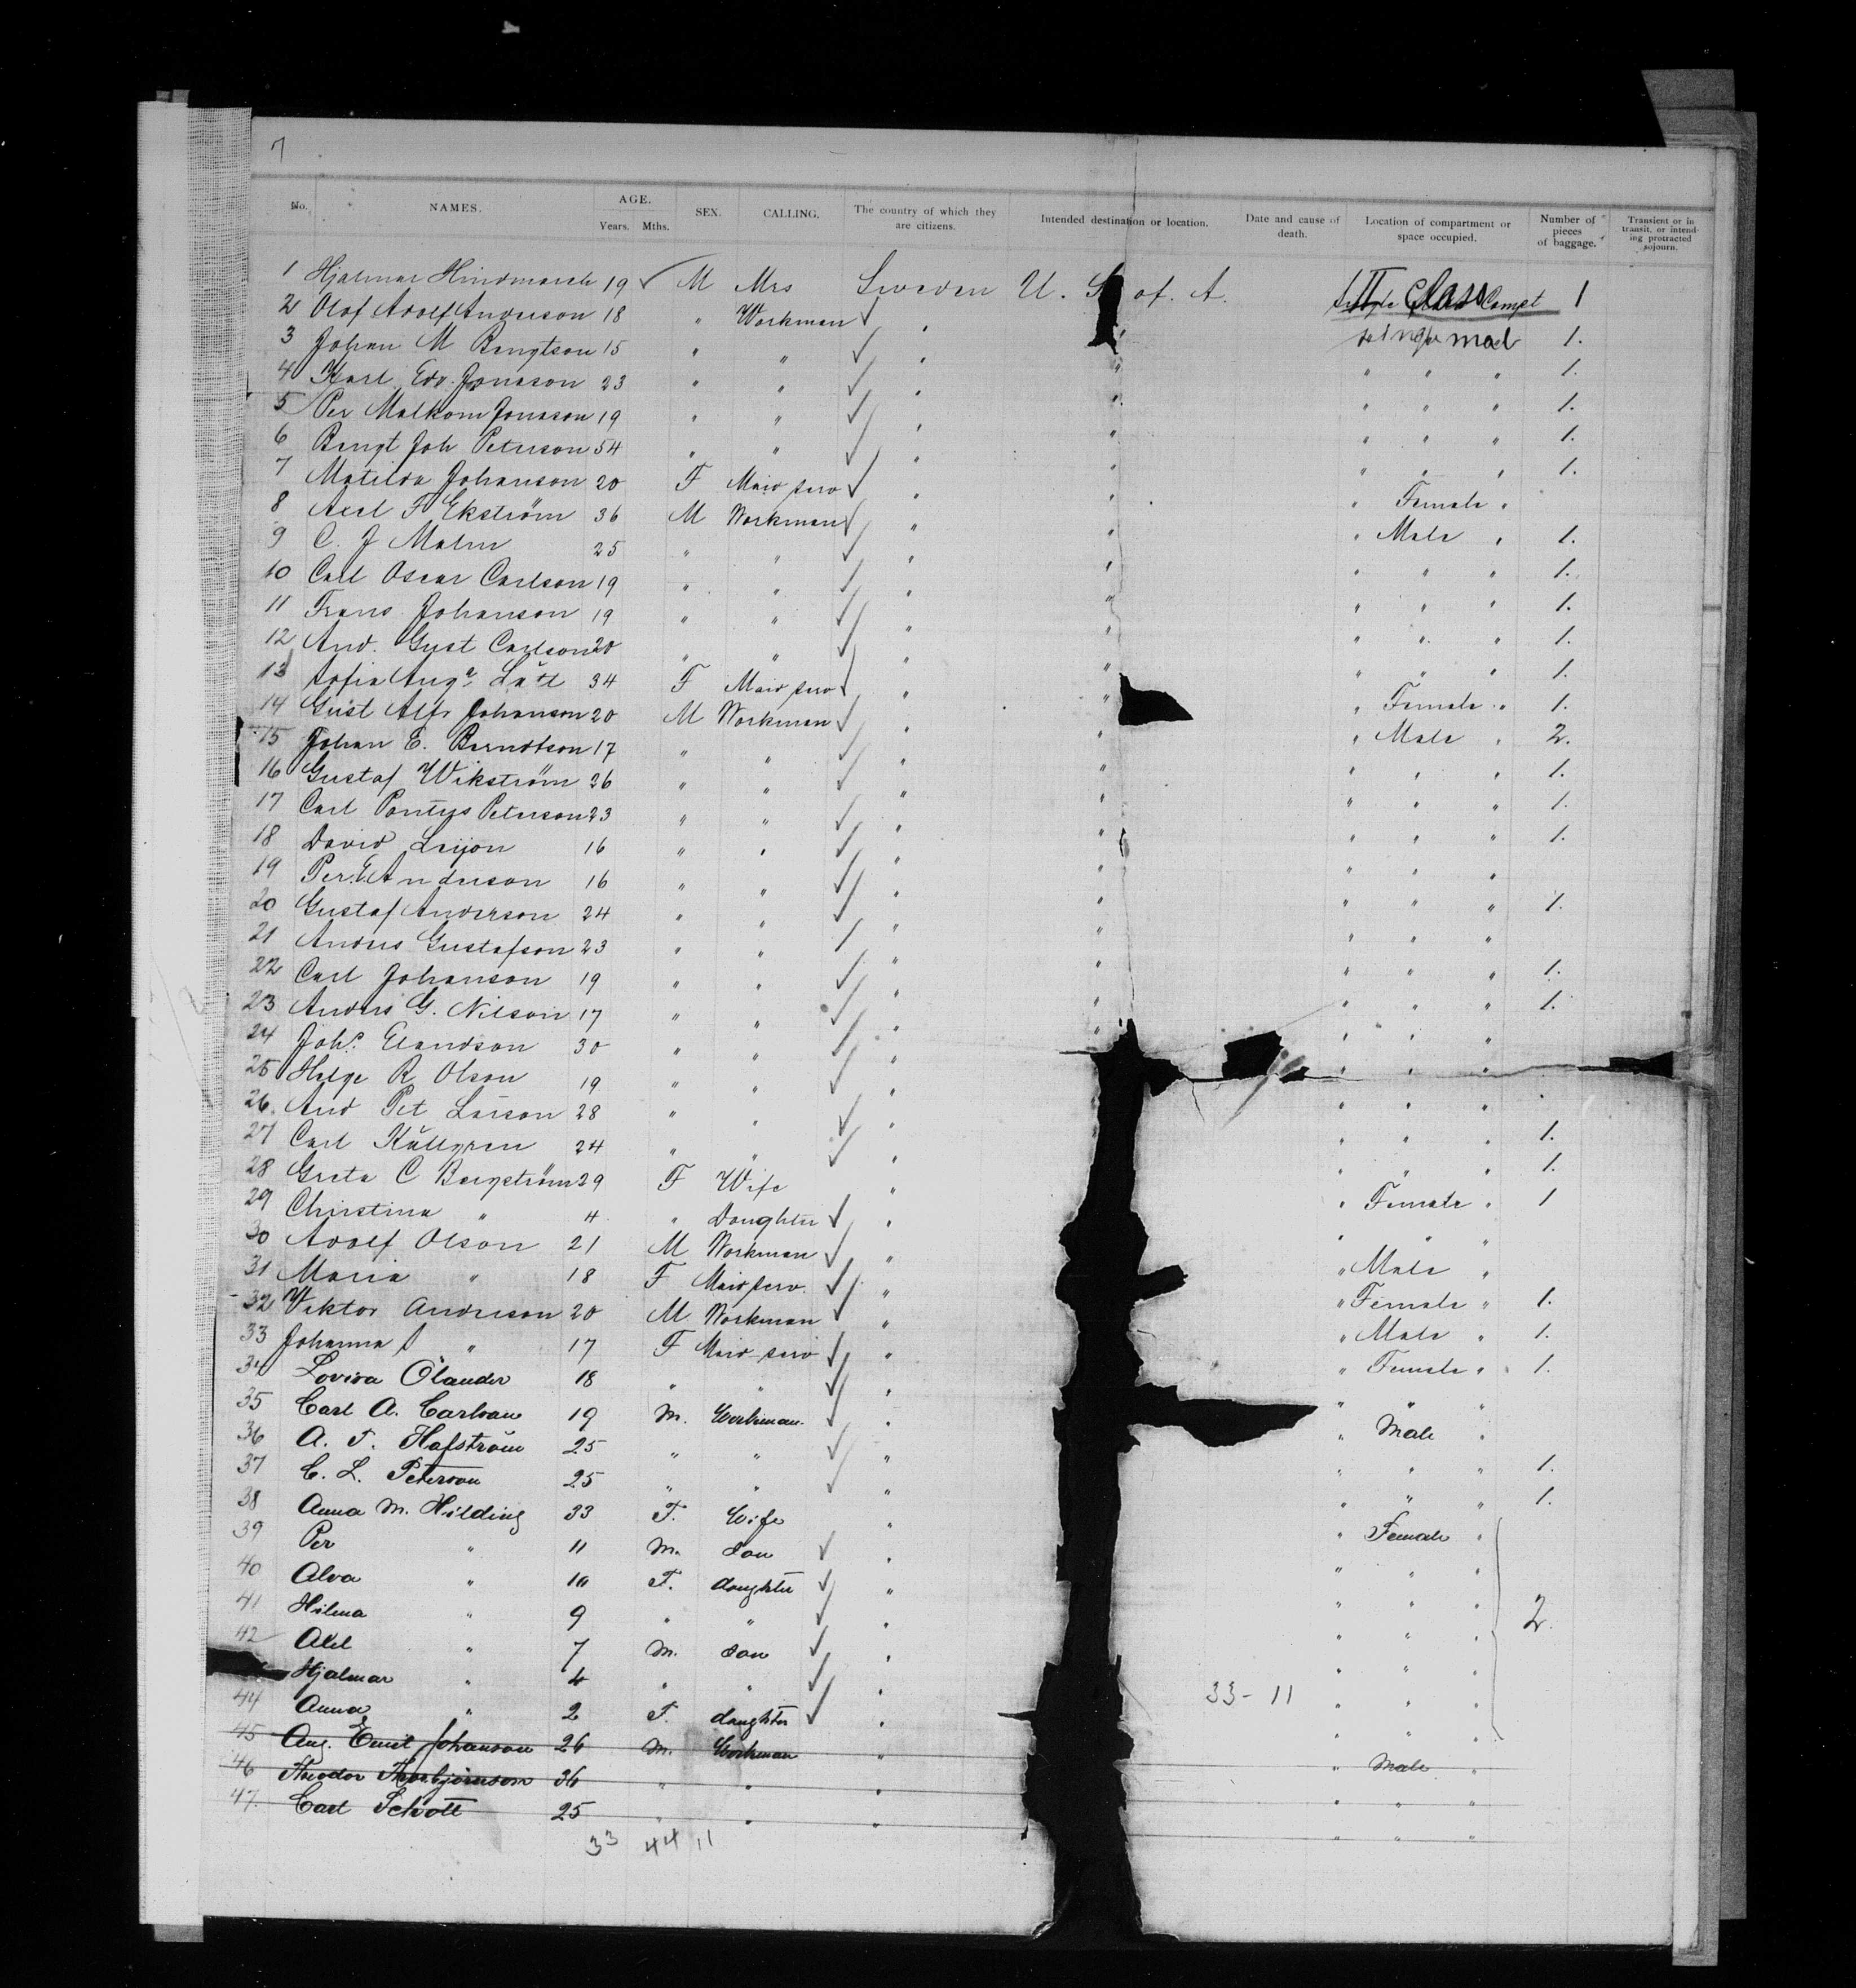 7
No. NAMES. AGE. Years. Mths. SEX. CALLING. The country of which they are citizens. Intended destination or location. Date and cause of death. Location of compartment or space occupied. Number of pieces of baggage. Transient or in transit, or intending protracted sojourn.
1 Hjalmar Hindmarch 19 M Mrs Sweden U. S. of. A. II Class Compt 1
2 Olof Adolf Anderson 18 " Workman " " single male 1.
3 Johan M Bengtson 15 " " " " " " " 1.
4 Karl Edv. Jonason 23 " " " " " " " 1.
5 Per Malkom Jonason 19 " " " " " " " 1.
6 Bengt Joh Peterson 54 " " " " " " " 1.
7 Matilda Johanson 20 F Maid serv " " " Female "
8 Axel F Ekström 36 M Workman " " " Male " 1.
9 C. J Malm 25 " " " " " " " 1.
10 Carl Oscar Carlson 19 " " " " " " " 1.
11 Frans Johanson 19 " " " " " " " 1.
12 And. Gust Carlson 20 " " " " " " " 1.
13 Sofia Aug. Lätt 34 F Maid serv " " " Female " 1.
14 Gust Alfr Johanson 20 M Workman " " " Male " 2.
15 Johan E. Berndtson 17 " " " " " " " 1.
16 Gustaf Wikström 26 " " " " " " " 1.
17 Carl Pontus Peterson 23 " " " " " " " 1.
18 David Leijon 16 " " " " " " "
19 Per. E. Anderson 16 " " " " " " " 1.
20 Gustaf Anderson 24 " " " " " " "
21 Anders Gustafson 23 " " " " " " " 1.
22 Carl Johanson 19 " " " " " " " 1.
23 Anders G. Nilson 17 " " " " " " "
24 Joh. Elandson 30 " " " " " "
25 Helge R Olson 19 " " " " " "
26. And Pet Larson 28 " " " " " " 1.
27 Carl Källgren 24 " " " " " " 1.
28 Greta C Bergström 29 F Wife " " Female " 1
29 Christina " 4 " Daughter " " " "
30 Adolf Olson 21 M Workman " " Male "
31 Maria " 18 F Maid serv. " " Female " 1.
32 Viktor Anderson 20 M Workman " " Male " 1.
33 Johanna S " 17 F Maid serv " " Female " 1.
34 Lovisa Ölander 18 " " " " " "
35 Carl A. Carlson 19 M. Workman. " " Male "
36 A. T. Hafström 25 " " " " " " 1.
37 C. L. Peterson 25 " " " " " " 1.
38 Anna M. Hilding 33 F. Wife " " Female "
39 Per " 11 M. Son " " " "
40 Alva " 10 F. daughter " " " "
41 Hilma " 9 " " " " " " 2.
42 Axel " 7 M. Son " " " "
Hjalmar " 4 " " " 33-11 " " "
44 Anna " 2 F. daughter " " " "
45 Aug. Emil Johanson 26 M. Workman " " Male "
46 Theodor Thorbjörnson 36 " " " " " "
47. Carl Schött 25 " " " " " "
33 44 11